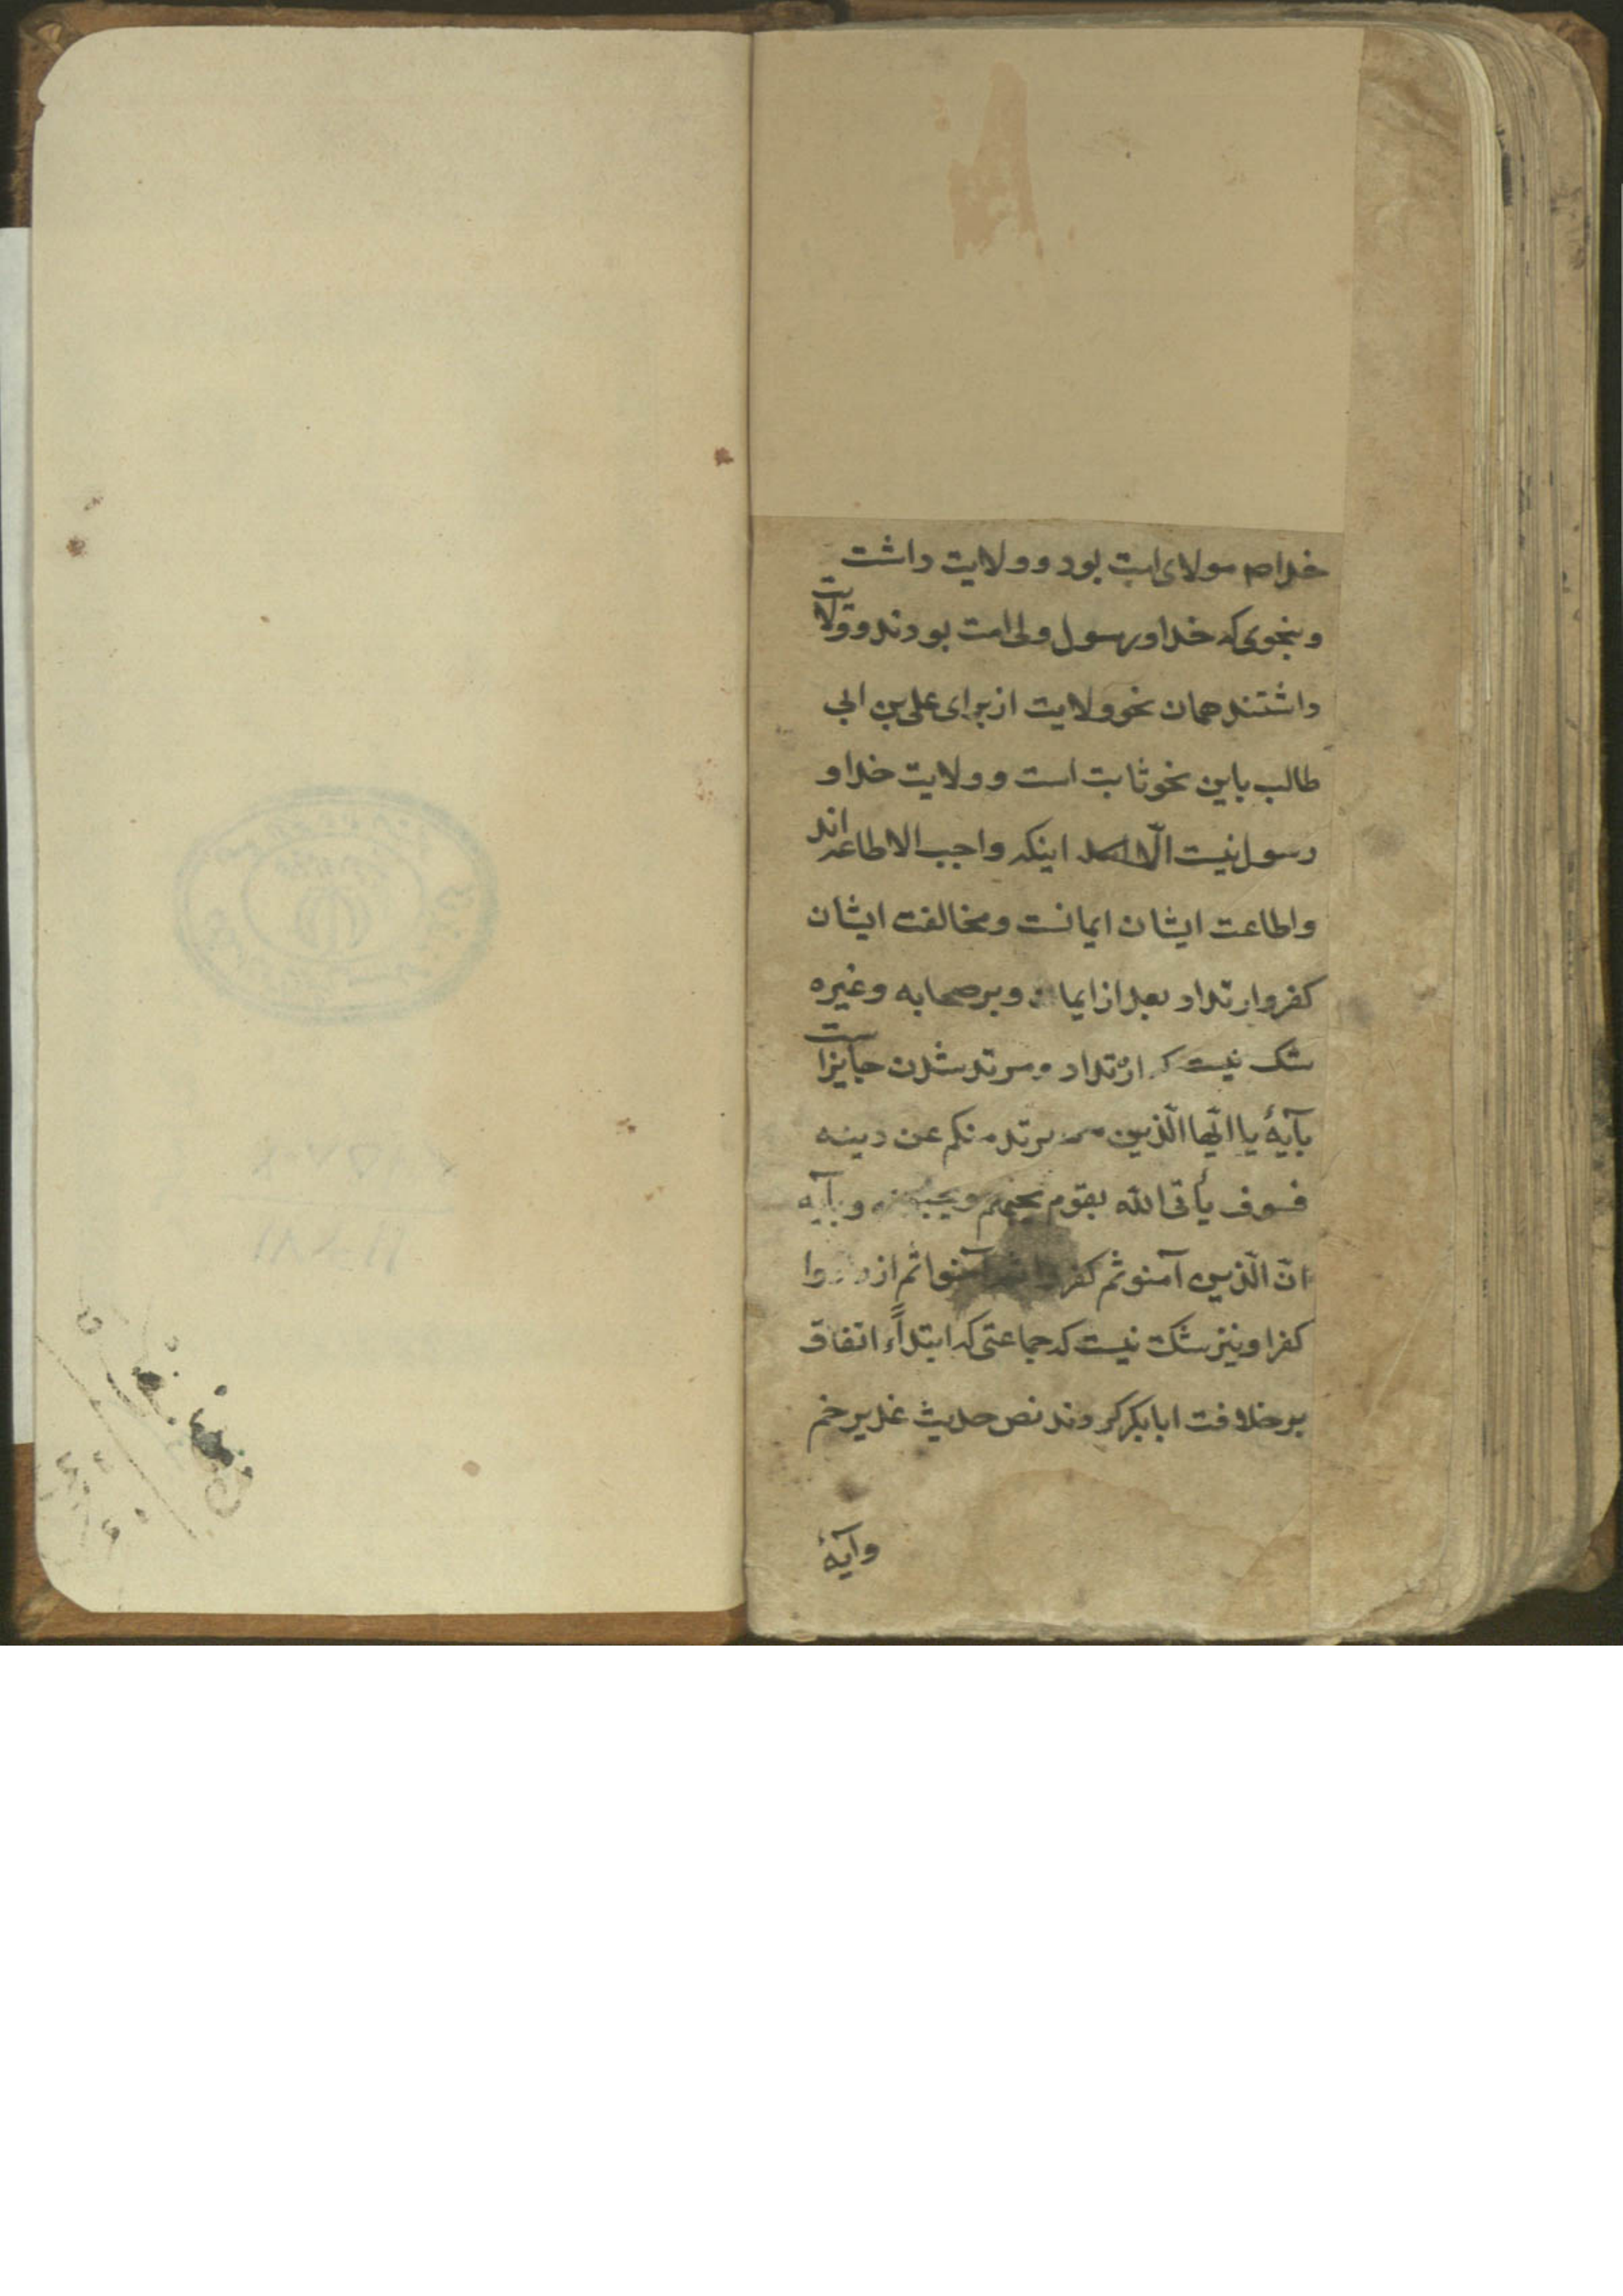 خدا ص مولای امت بود و ولایت داشت
و بنحوی که خدا و رسول ولی امت بودند و ولایت
داشتند همان نحو ولایت از برای علی بن ابی
طالب باین نحو ثابت است و ولایت خدا و
رسول نیست الّا اینکه واجب الاطاعه‌اند
و اطاعت ایشان ایمانست و مخالفت ایشان
کفر و ارتداد بعد از ایمان و بر صحابه و غیره
شک نیست که ارتداد و مرتد شدن جایز است
بآیۀ یا ایّها الّذین من یرتد منکم عن دینه
فسوف یأتی الله بقوم یحبهم ویحبونه و بآیه
انّ الّذین آمنو ثم کفروا ثم آمنوا ثم ازدادوا
کفرا و نیز شک نیست که جماعتی که ابتداءً اتفاق
بر خلافت ابابکر کردند نص حدیث غدیر خم
وآیۀ